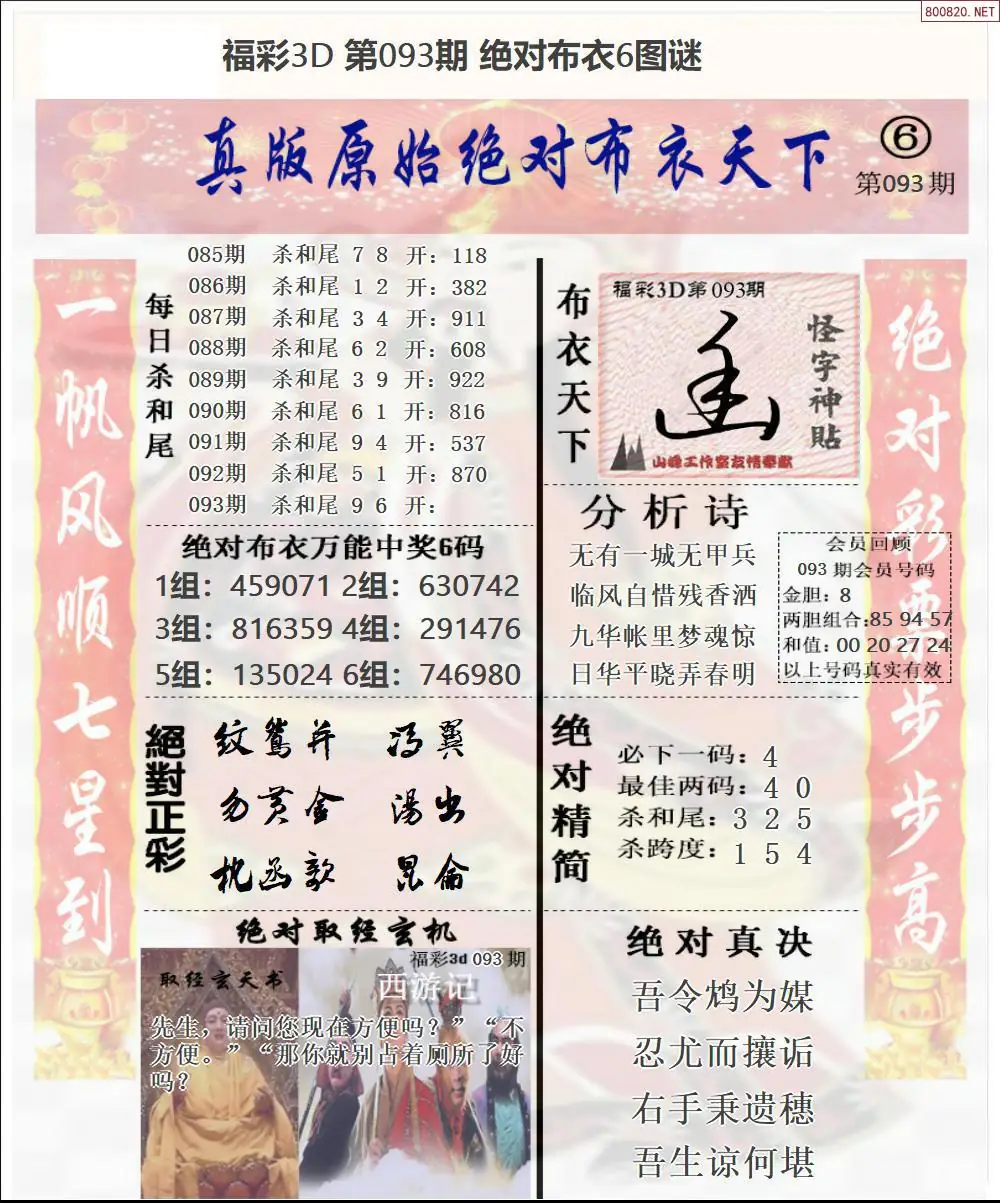 800820.NET
福彩3D 第093期 绝对布衣6图谜
真版原始绝对布衣天下
⑥
第093期
一帆风顺七星到
每日杀和尾
085期 杀和尾 7 8 开：118
086期 杀和尾 1 2 开：382
087期 杀和尾 3 4 开：911
088期 杀和尾 6 2 开：608
089期 杀和尾 3 9 开：922
090期 杀和尾 6 1 开：816
091期 杀和尾 9 4 开：537
092期 杀和尾 5 1 开：870
093期 杀和尾 9 6 开：
绝对布衣万能中奖6码
1组：459071 2组：630742
3组：816359 4组：291476
5组：135024 6组：746980
絕對正彩
纹鸳并 冯翼
勿黄金 湯出
枕函歌 昆侖
绝对取经玄机
福彩3d 093 期
取经玄天书
西游记
先生，请问您现在方便吗？”“不
方便。”“那你就别占着厕所了好
吗？
布衣天下
福彩3D第093期
怪字神貼
山峰工作室友情奉献
分析诗
无有一城无甲兵
临风自惜残香洒
九华帐里梦魂惊
日华平晓弄春明
会员回顾
093 期会员号码
金胆：8
两胆组合:85 94 57
和值：00 20 27 24
以上号码真实有效
绝对精简
必下一码：4
最佳两码：4 0
杀和尾：3 2 5
杀跨度：1 5 4
绝对真决
吾令鸩为媒
忍尤而攘诟
右手秉遗穗
吾生谅何堪
绝对彩票步步高